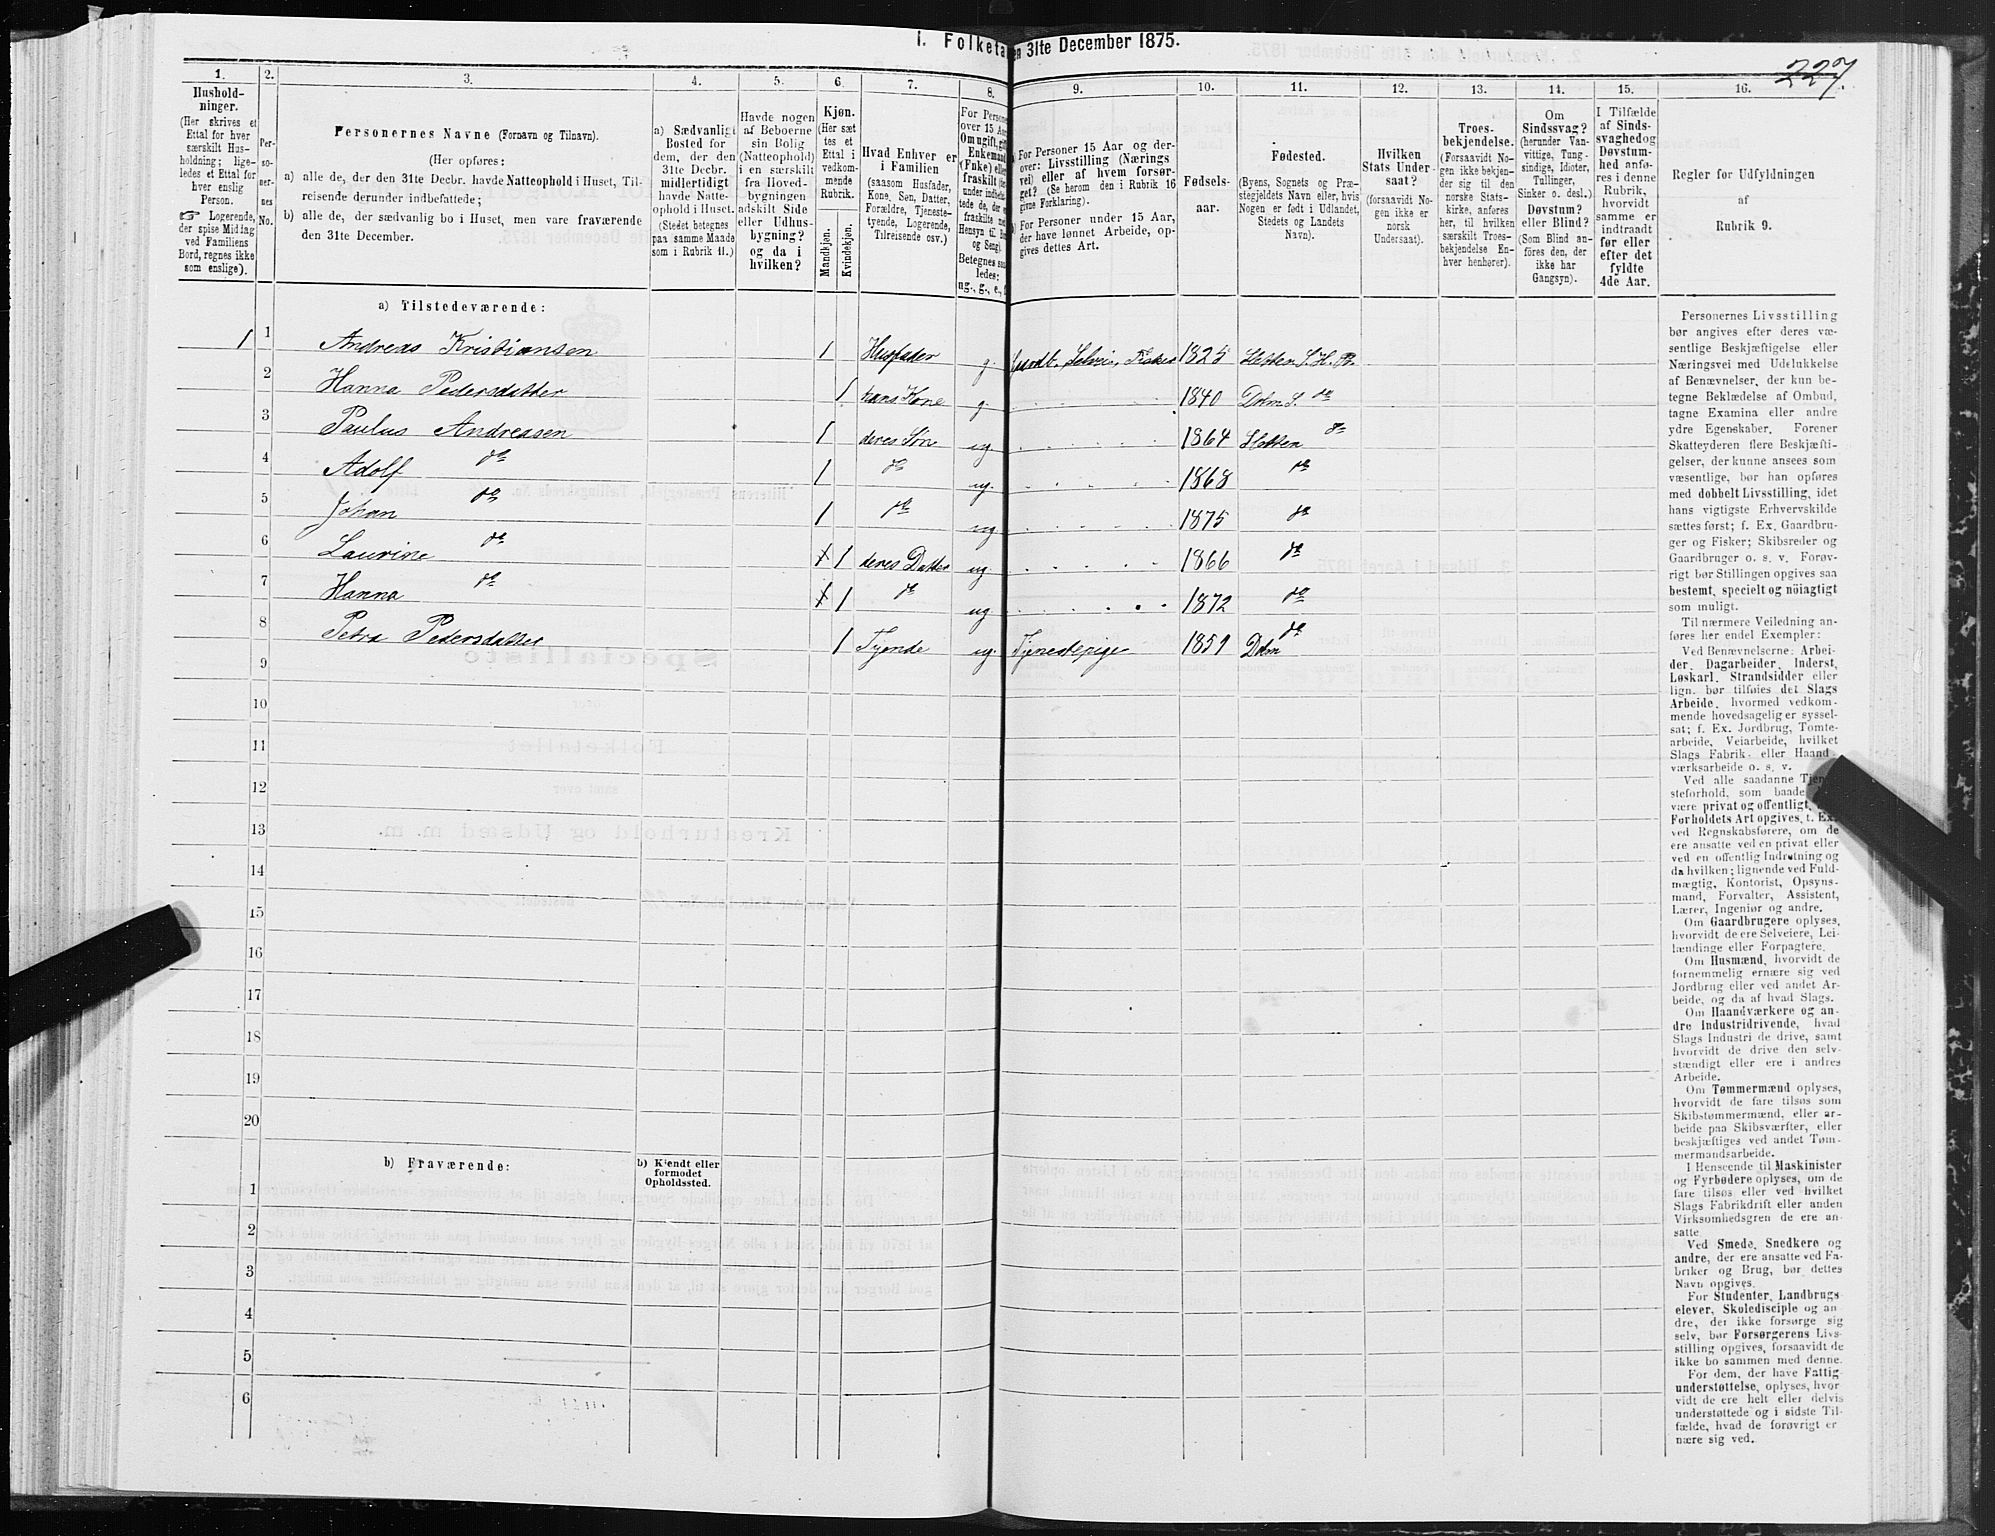 227.
I. Folketa
en 31te December 1875.
1. 2. 3. 4. 5. 6. 7. 8. 9. 10. 11. 12. 13. 14. 15. 16.
Hushold-
ninger.
(Her skrives et
Ettal for hver
særskilt Hus-
holdning; lige-
ledes et Ettal for
hver enslig
Person.
☞ Logerende,
der spise Middag
ved Familiens
Bord, regnes ikke
som enslige).
Per-
so-
ner-
nes
No.
Personernes Navne (Fornavn og Tilnavn).
(Her opføres:
a) alle de, der den 31te Decbr. havde Natteophold i Huset, Til-
reisende derunder indbefattede;
b) alle de, der sædvanlig bo i Huset, men vare fraværende
den 31te December.
a) Sædvanligt
Bosted for
dem, der den
31te Decbr.
midlertidigt
havde Natte-
ophold i Huset.
(Stedet betegnes
paa samme Maade
som i Rubrik 11.)
Havde nogen
af Beboerne
sin Bolig
(Natteophold)
i en særskilt
fra Hoved-
bygningen
adskilt Side
eller Udhus-
bygning?
og da i
hvilken?
Kjøn.
(Her sæt
tes et
Ettal i
vedkom-
mende
Rubrik.
Mandkjøn.
Kvindekjøn.
Hvad Enhver er
i Familien
(saasom Husfader,
Kone, Søn, Datter,
Forældre, Tjeneste-
tyende, Logerende,
Tilreisende osv.)
For Persone
over 15 Aa
Om ugift, gif
Enkemand
(Enke) elle
fraskilt
Betegnes saa
ledes:
ug., g., e., f
For Personer 15 Aar og der-
over: Livsstilling (Nærings
vei) eller af hvem forsør-
get? (Se herom den i Rubrik 16
givne Forklaring).
For Personer under 15 Aar,
der have lønnet Arbeide, op-
gives dettes Art.
Fødsels-
aar.
Fødested.
(Byens, Sognets og Præ-
stegjeldets Navn eller, hvis
Nogen er født i Udlandet,
Stedets og Landets
Navn).
Hvilken
Stats Under
saat?
(forsaavidt No-
gen ikke er
norsk
Undersaat).
Troes-
bekjendelse.
(Forsaavidt No-
gen ikke bekjen-
der sig til den
norske Stats-
kirke, anføres
her, til hvilken
særskilt Troes-
bekjendelse En-
hver henhører).
Om
Sindssvag?
(herunder Van-
vittige, Tung-
sindige, Idioter,
Tullinger,
Sinker o. desl.)
Døvstum?
eller Blind?
(Som Blind an-
føres den, der
ikke har
Gangsyn).
I Tilfælde
af Sinds-
svaghed og
Døvstum-
hed anfø-
res i denne
Rubrik,
hvorvidt
samme er
indtraadt
før eller
efter det
fyldte
4de Aar.
Regler for Udfyldningen
af
Rubrik 9.
a) Tilstedeværende:
1 1 Andreas Kristiansen 1 Husfader g. Jordb. Selveier, Fisker 1825
2 Hanna Pedersdatter 1 hans Kone g. 1840 Dolm S. do
3 Paulus Andreasen 1 deres Søn ug. 1864 do
4 Adolf do 1 do ug. 1868 do
5 Johan do 1 do ug. 1875 do
6 Laurine do 1 deres Datter ug. 1866 do
7 Hanna do 1 do ug 1872 do
8 Petra Pedersdatter 1 Tyende ug. Tjenestepige 1859 Dolm do
9
10
11
12
13
14
15
16
17
18
19
20
b) Fraværende:
b) Kjendt eller
formodet
Opholdssted.
1
2
3
4
5
6
Personernes Livsstilling
bør angives efter deres væ-
sentlige Beskjæftigelse eller
Næringsvei med Udelukkelse
af Benævnelser, der kun be-
tegne Beklædelse af Ombud,
tagne Examina eller andre
ydre Egenskaber. Forener
Skatteyderen flere Beskjæfti-
gelser, der kunne ansees som
væsentlige, bør han opføres
med dobbelt Livsstilling, idet
hans vigtigste Erhvervskilde
sættes først; f. Ex. Gaardbru-
ger og Fisker; Skibsreder og
Gaardbruger o. s. v. Forøv-
rigt bør Stillingen opgives saa
bestemt, specielt og nöiagtigt
som muligt.
Til nærmere Veiledning an-
føres her endel Exempler:
Ved Benævnelserne: Arbei-
der, Dagarbeider, Inderst,
Løskarl, Strandsidder eller
lign. bør tilføies det Slags
Arbeide, hvormed vedkom-
mende hovedsagelig er syssel-
sat; f. Ex. Jordbrug, Tomte-
arbeide, Veiarbeide, hvilket
Slags Fabrik- eller Haand-
værksarbeide o. s. v.
Ved alle saadanne Tjen
steforhold, som baade
være privat og offentligt,
Forholdets Art opgives, t. Ex.
ved Regnskabsførere, om de
ere ansatte ved en privat eller
ved en offentlig Indretning og
da hvilken; lignende ved Fuld-
mægtig, Kontorist, Opsyns-
mand, Forvalter, Assistent,
Lærer, Ingeniør og andre.
Om Gaardbrugere oplyses,
hvorvidt de ere Selveiere, Lei-
lændinge eller Forpagtere.
Om Husmænd, hvorvidt de
fornemmelig ernære sig ved
Jordbrug eller ved andet Ar-
beide, og da af hvad Slags.
Om Haandværkere og an-
dre Industridrivende, hvad
Slags Industri de drive, samt
hvorvidt de drive den selv-
stændigt eller ere i andres
Arbeide.
Om Tømmermænd oplyses,
hvorvidt de fare tilsøs som
Skibstømmermænd, eller ar-
beide paa Skibsværfter, eller
beskjæftiges ved andet Tøm-
mermandsarbeide.
I Henseende til Maskinister
og Fyrbødere oplyses, om de
fare tilsøs eller ved hvilket
Slags Fabrikdrift eller anden
Virksomhedsgren de ere an-
satte.
Ved Smede, Snedkere og
andre, der ere ansatte ved Fa-
briker og Brug, bør dettes
Navn opgives.
For Studenter, Landbrugs-
elever, Skoledisciple og an-
dre, der ikke forsørge sig
selv, bør Forsørgerens Livs-
stilling opgives, forsaavidt de
ikke bo sammen med denne.
For dem, der have Fattig-
understøttelse, oplyses, hvor
vidt de ere helt eller delvis
understøttede og i sidste Til-
fælde, hvad de forøvrigt er
nære sig ved.